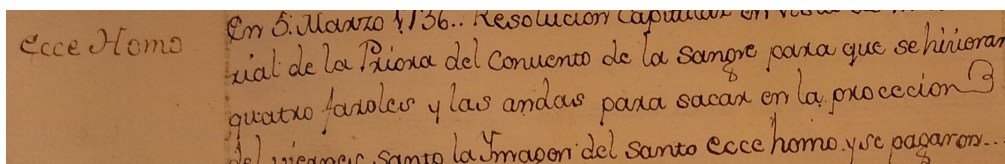 Ecce Homo
En 5. Marzo 1736.. Resolucion Capitular en vista de
rial de la Priora del Convento de la Sangre para que se hizieran
quatro faroles y las andas para sacar en la procecion
del viernes santo la Ymagen del santo ecce homo. y se pagaron..